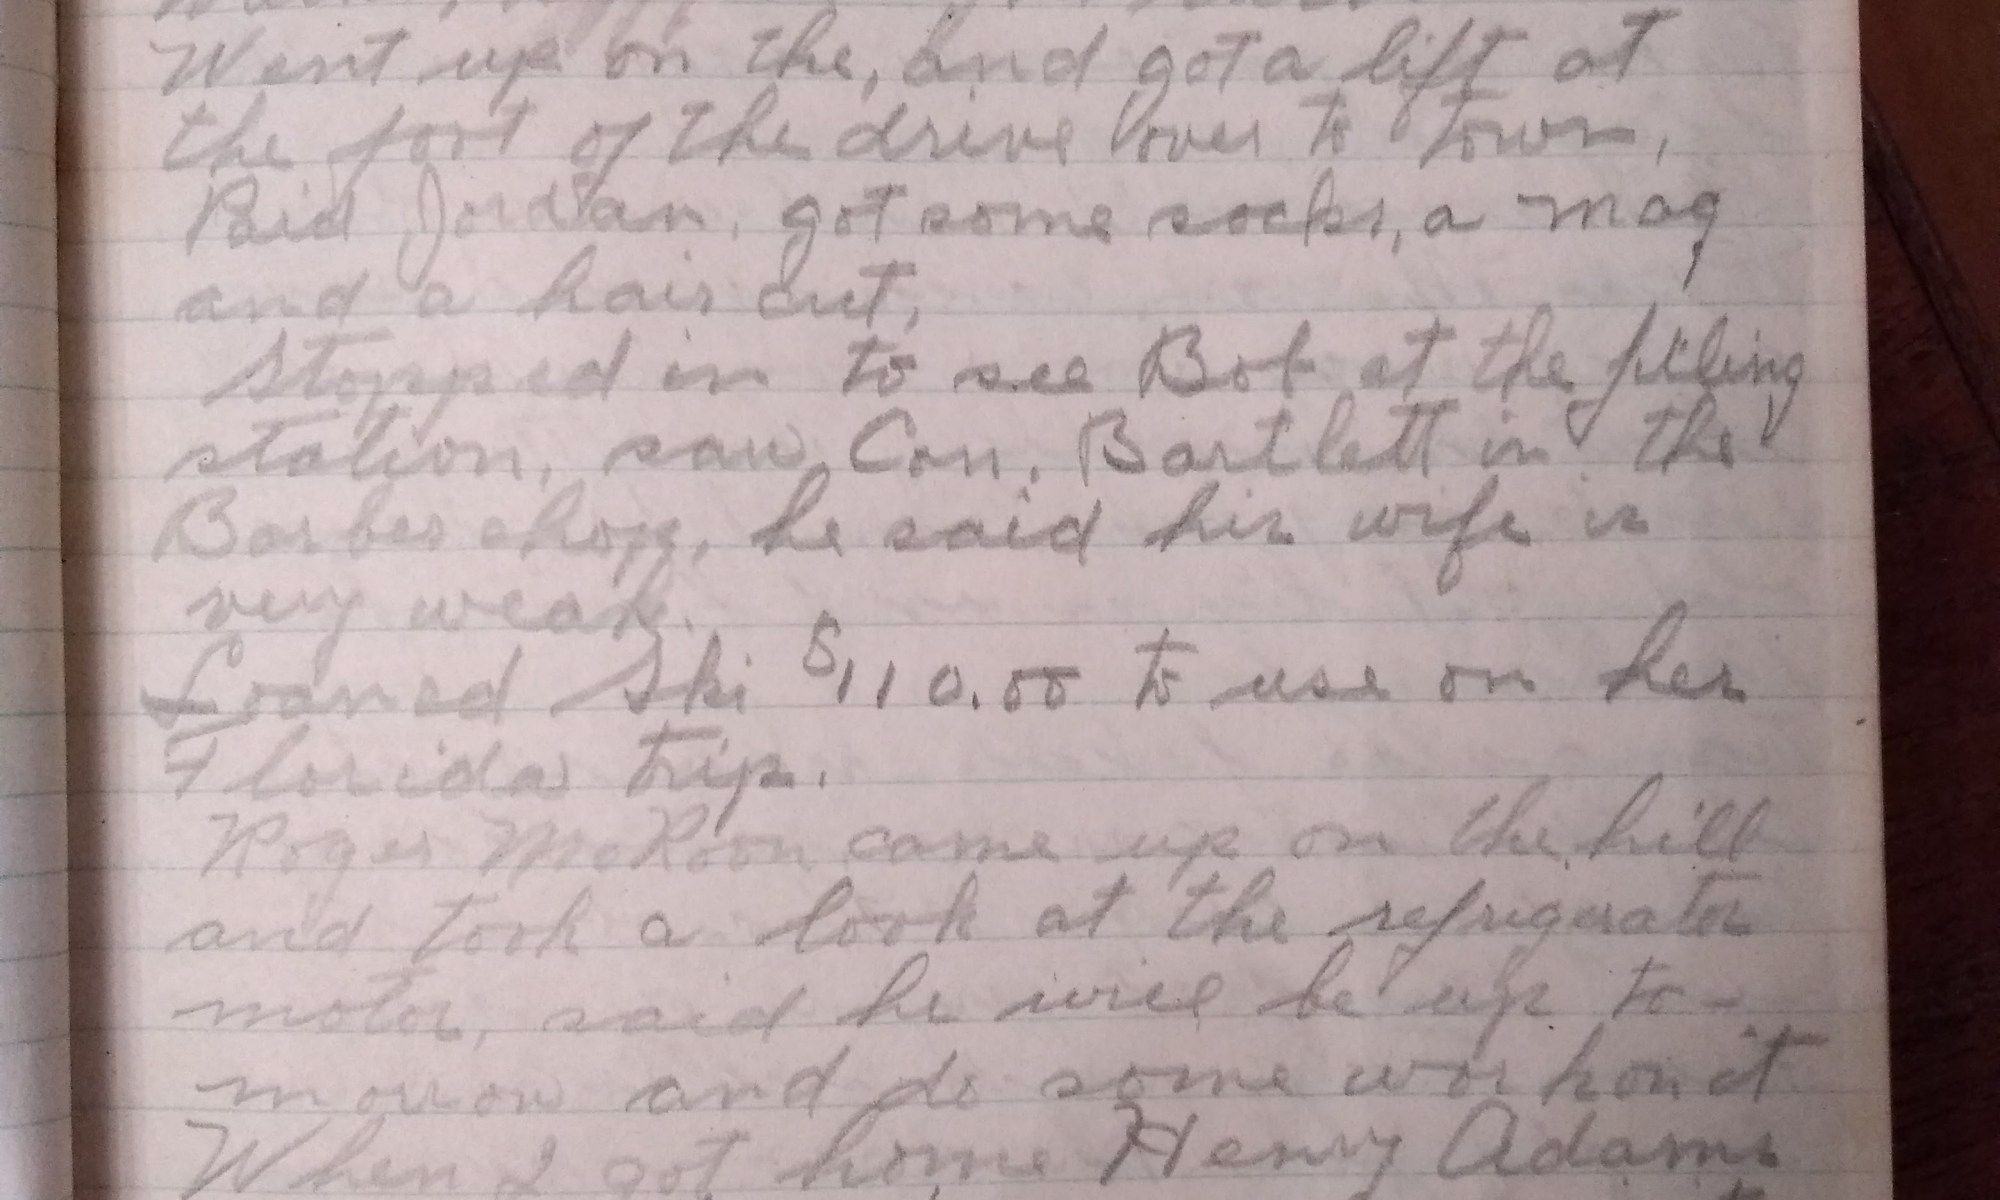 Went up on the, and got a lift at
the foot of the drive over to town,
Paid Jordan, got some socks, a mag
and a hair cut,
Stopped in to see Bob at the filling
station, saw Con. Bartlett in the
Barber shop, he said his wife is
very weak.
Loaned Ski $110.00 to use on her
Florida trip.
Roger came up on the hill
and took a look at the refrigerator
motor, said he will be up to-
morrow and do some work on it
When I got home Henry Adams